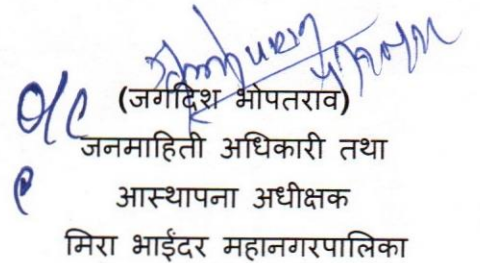 O/C
(जगदिश भोपतराव)
जनमाहिती अधिकारी तथा
आस्थापना अधीक्षक
मिरा भाईंदर महानगरपालिका